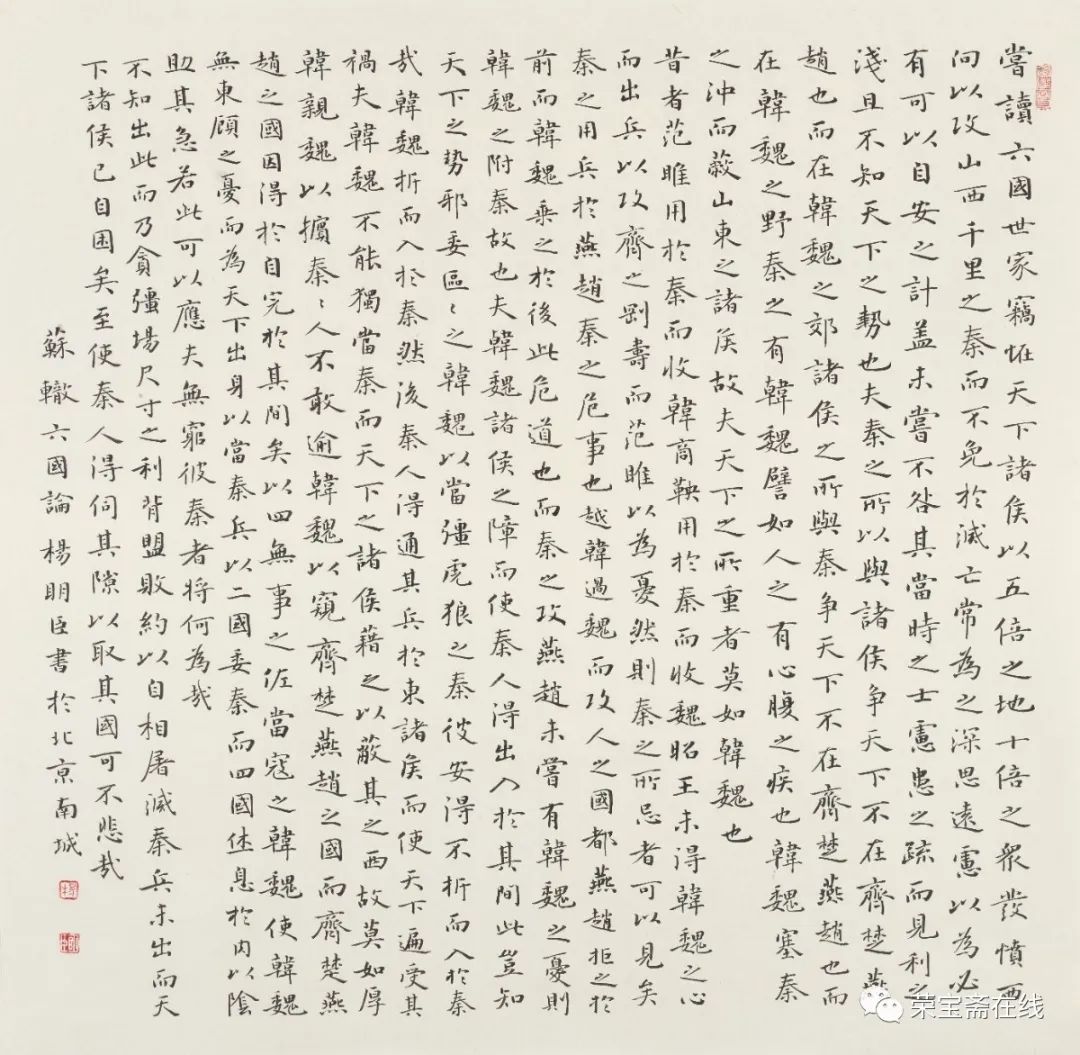 嘗讀六國世家竊怪天下諸侯以五倍之地十倍之衆發憤西
向以攻山西千里之秦而不免於滅亡常為之深思遠慮以為必
有可以自安之計盖未嘗不咎其當時之士慮患之疏而見利之
淺且不知天下之勢也夫秦之所以與諸侯争天下不在齊楚燕
趙也而在韓魏之郊諸侯之所與秦争天下不在齊楚燕趙也而
在韓魏之野秦之有韓魏譬如人之有心腹之疾也韓魏塞秦
之沖而蔽山東之諸侯故夫天下之所重者莫如韓魏也
昔者范雎用於秦而收韓商鞅用於秦而收魏昭王未得韓魏之心
而出兵以攻齊之剛壽而范雎以為憂然則秦之所忌者可以見矣
秦之用兵於燕趙秦之危事也越韓過魏而攻人之國都燕趙拒之於
前而韓魏乘之於後此危道也而秦之攻燕趙未嘗有韓魏之憂則
韓魏之附秦故也夫韓魏諸侯之障而使秦人得出入於其間此豈知
天下之勢邪委區〻之韓魏以當彊虎狼之秦彼安得不折而入於秦
哉韓魏折而入於秦然後秦人得通其兵於東諸侯而使天下遍受其
禍夫韓魏不能獨當秦而天下之諸侯藉之以蔽其之西故莫如厚
韓親魏以擯秦〻人不敢逾韓魏以窺齊楚燕趙之國而齊楚燕
趙之國因得於自完於其間矣以四無事之佐當寇之韓魏使韓魏
無東顧之憂而為天下出身以當秦兵以二國委秦而四國休息於内以陰
助其急若此可以應夫無窮彼秦者将何為哉
不知出此而乃貪彊場尺寸之利背盟敗約以自相屠滅秦兵未出而天
下諸侯已自困矣至使秦人得伺其隙以取其國可不悲哉
蘇轍六國論楊明臣書於北京南城
荣宝斋在线